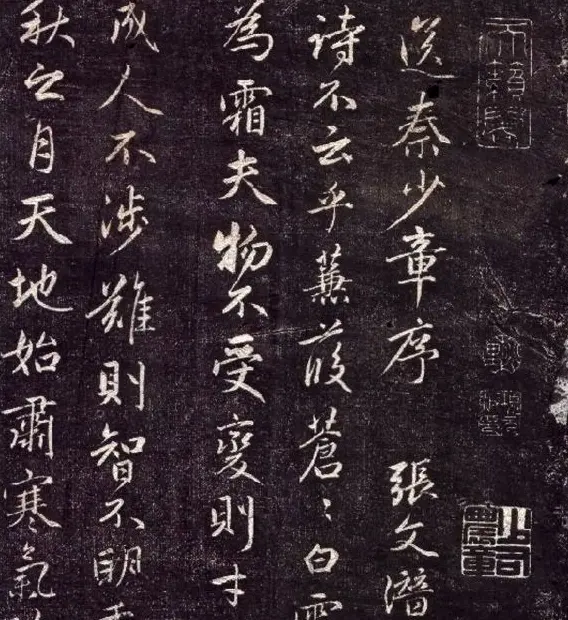 送秦少章序 張文潛
詩不云乎蒹葭蒼〻白露
為霜夫物不受變則才
成人不涉難則智不明季
秋之月天地始肅寒氣